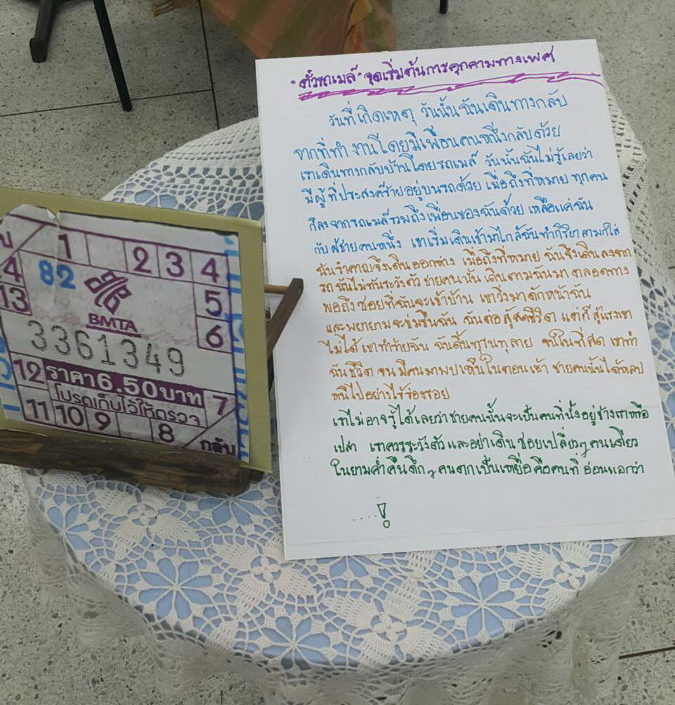 "ตั๋วรถเมล์" จุดเริ่มต้นการคุกคามทางเพศ
วันที่เกิดเหตุ วันนั้นฉันเดินทางกลับ
จากที่ทำงานโดยมีเพื่อนคนหนึ่งกลับด้วย
เราเดินทางกลับบ้านโดยรถเมล์ วันนั้นฉันไม่รู้เลยว่า
มีผู้ที่ประสงค์ร้ายอยู่บนรถด้วย เมื่อถึงที่หมาย ทุกคน
ก็ลงจากรถเมล์รวมถึงเพื่อนของฉันด้วย เหลือแค่ฉัน
กับผู้ชายคนหนึ่ง เขาเริ่มเดินเข้ามาใกล้ฉันทำกิริยาลามกใส่
ฉันรำคาญจึงเดินออกห่าง เมื่อถึงที่หมาย ฉันจึงเดินลงจาก
รถ ฉันไม่ทันระวังตัว ชายคนนั้น เดินตามฉันมา ตลอดทาง
พอถึงซอยที่ฉันจะเข้าบ้าน เขาวิ่งมาดักหน้าฉัน
และพยายามจะข่มขืนฉัน ฉันต่อสู้สุดชีวิต แต่ก็สู้แรงเขา
ไม่ได้ เขาทำร้ายฉัน ฉันดิ้นทุรนทุราย จนในที่สุด เขาฆ่า
ฉันเสียชีวิต จนมีคนมาพบศพในตอนเช้า ชายคนนั้นได้หลบ
หนีไปอย่างไร้ร่องรอย
เราไม่อาจรู้ได้เลยว่าชายคนนั้นจะเป็นคนที่นั่งอยู่ข้างเราหรือ
เปล่า เราควรระวังตัวและอย่าเดินซอยเปลี่ยวๆคนเดียว
ในยามค่ำคืนดึกๆ คนตกเป็นเหยื่อคือคนที่อ่อนแอกว่า
.....!
1 2 3 4
4 82 5
13 BMTA 6
3361349
12 ราคา 6.50 บาท 7
โปรดเก็บไว้ให้ตรวจ
11 10 9 8 กลับ